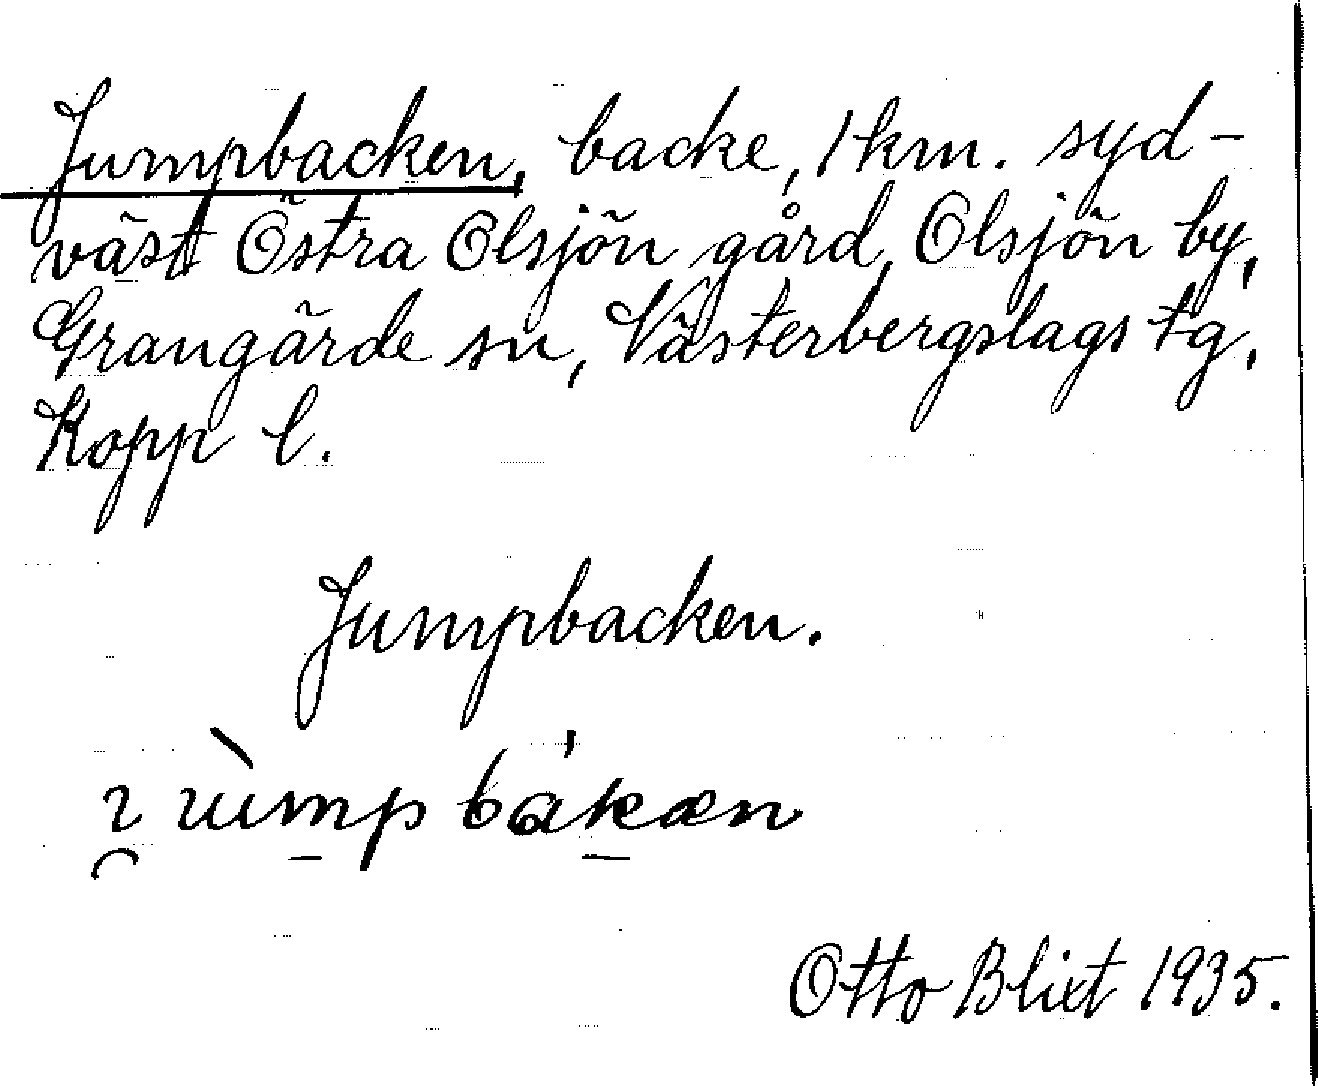 Jumpbacken, backe, 1 km. syd-
väst Östra Olsjön gård, Olsjön by,
Grangärde sn, Västerbergslags tg.
Kopp l.
Jumpbacken.
Otto Blixt 1935.